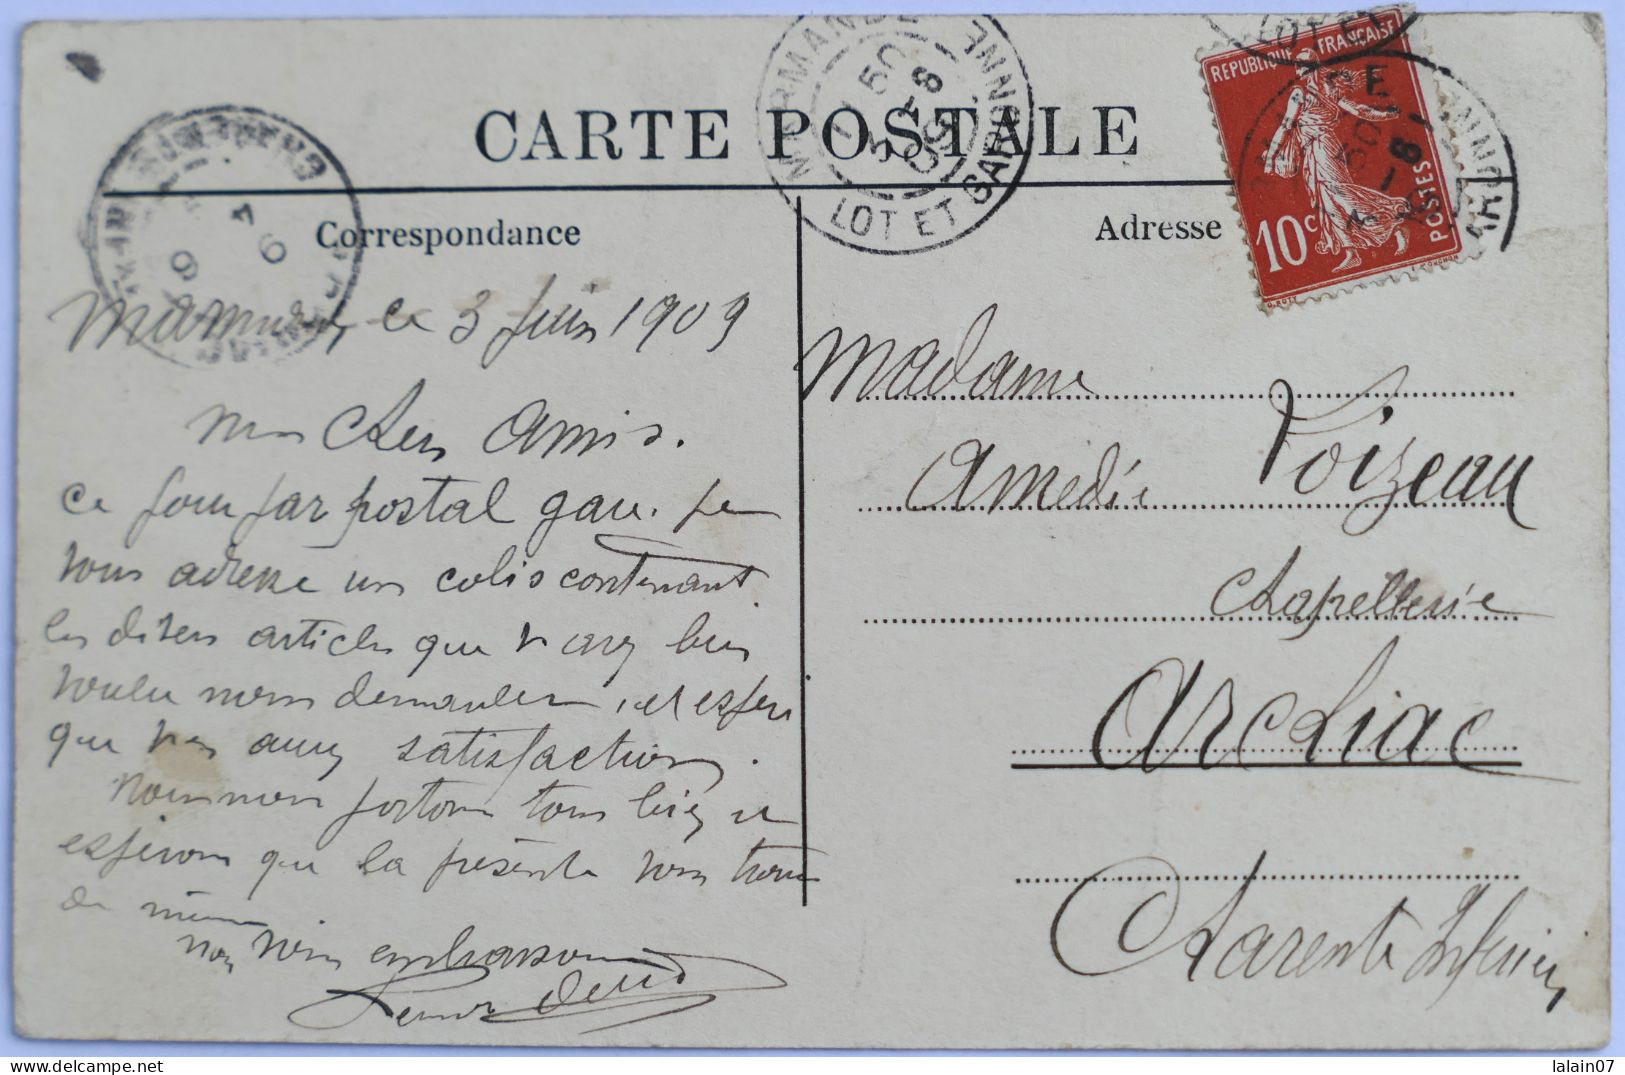 CARTE POSTALE
Correspondance
Adresse
MARMANDE
LOT ET GARONNE
REPUBLIQUE FRANÇAISE
10c
POSTES
ce 3 Juin 1909
Mes Chers Amis.
Ce jour par postal gare. je
vous adresse un colis contenant
les divers articles que v avez bien
voulu nous demander, et espère
que vous aurez satisfaction.
Nous nous portons tous bien et
espérons que la présente vous trouve
de même
Nous vous embrassons
Madame
Amédée Voizeau
Chapellerie
Archiac
Charente Inférieure
lalain07
delcampe.net